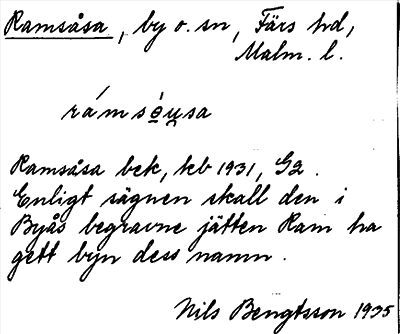 Ramsåsa, by o. sn, Färs hd,
Malm. l.
rámsò̲u̯sa
Ramsåsa bek, hb 1931, G2.
Enligt sägnen skall den i
Byås begravne jätten Ram ha
gett byn dess namn.
Nils Bengtsson 1935